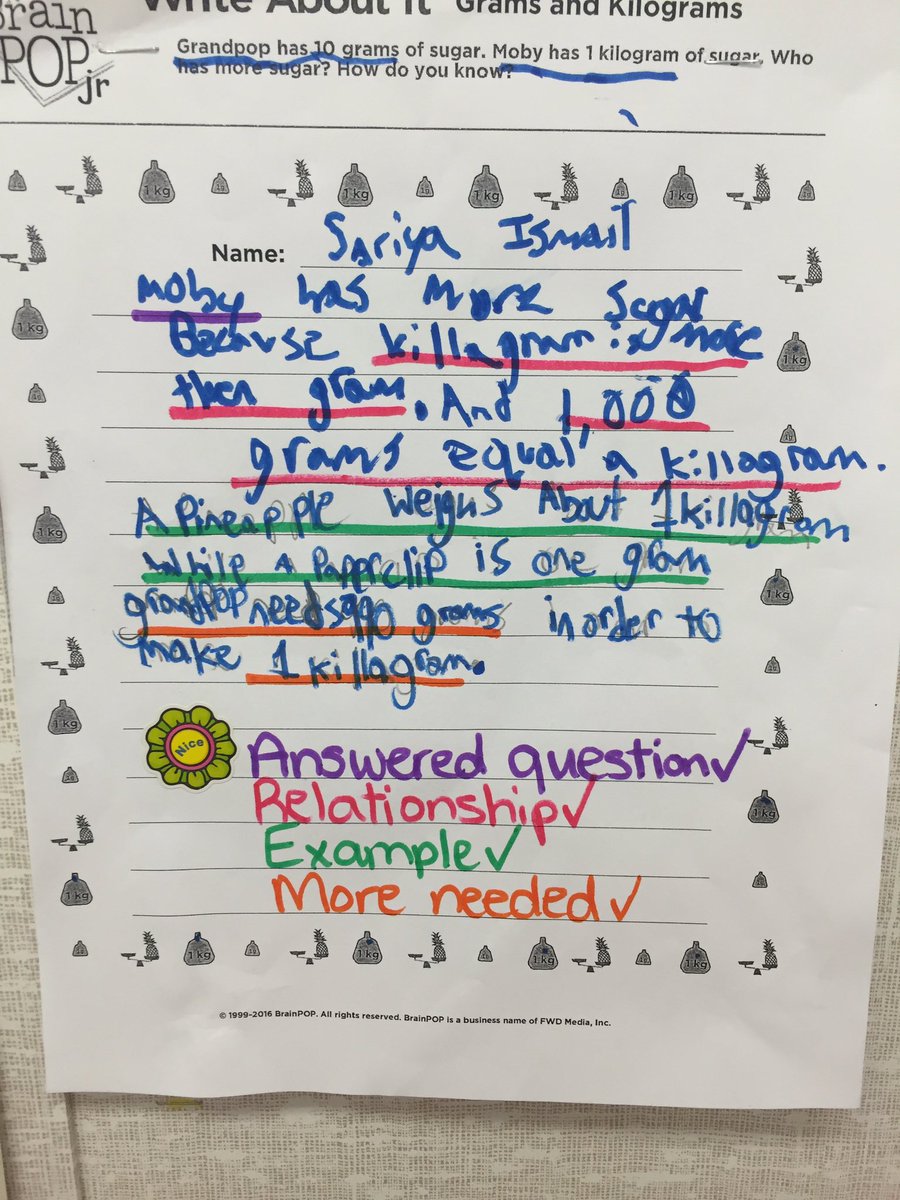 Brain POP jr
Write About It Grams and Kilograms
Grandpop has 10 grams of sugar. Moby has 1 kilogram of sugar. Who
has more sugar? How do you know?
Name: Sariya Ismail
Moby has more sugar
Because killagram is more
then gram. And 1,000
grams equal a killagram.
A pineapple weighs About 1 killagram
while a paperclip is one gram
grandpop needs 990 grams in order to
make 1 killagram.
Nice
Answered question✓
Relationship✓
Example✓
More needed✓
© 1999-2016 BrainPOP. All rights reserved. BrainPOP is a business name of FWD Media, Inc.